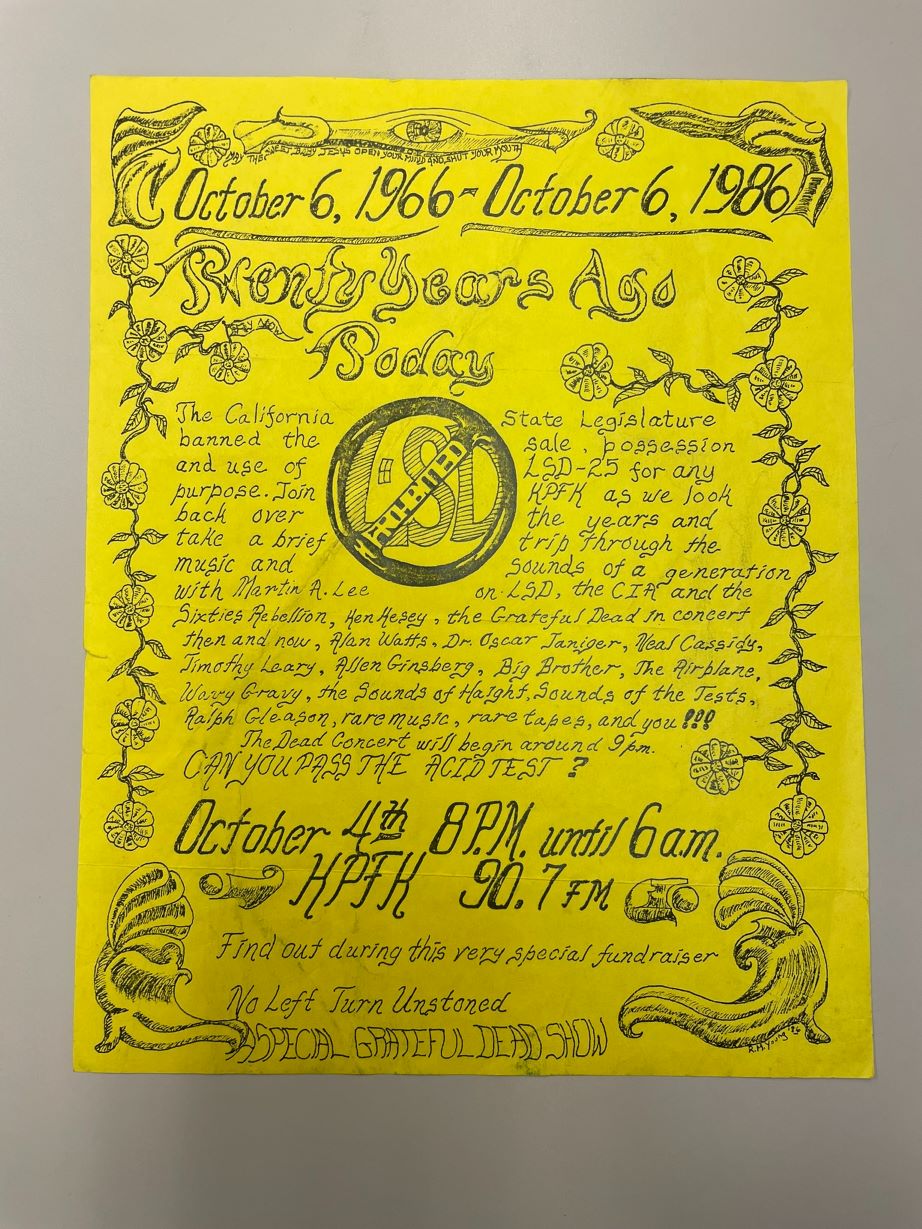 MAY THE SWEET BABY JESUS OPEN YOUR MIND AND SHUT YOUR MOUTH
October 6, 1966 - October 6, 1986
Twenty Years Ago
Today
The California State Legislature
banned the sale, possession
and use of LSD-25 for any
purpose. Join KPFK as we look
back over the years and
take a brief trip through the
music and Sounds of a generation
with Martin A. Lee on LSD, the CIA and the
Sixties Rebellion, Ken Kesey, the Grateful Dead in concert
then and now, Alan Watts, Dr. Oscar Janiger, Neal Cassidy,
Timothy Leary, Allen Ginsberg, Big Brother, The Airplane,
Wavy Gravy, the Sounds of Haight, Sounds of the Tests,
Ralph Gleason, rare music, rare tapes, and you !!!
The Dead Concert will begin around 9pm.
CAN YOU PASS THE ACID TEST ?
LSD
October 4th 8P.M. until 6am.
KPFK 90.7 FM
Find out during this very special fundraiser
No Left Turn Unstoned
A SPECIAL GRATEFUL DEAD SHOW